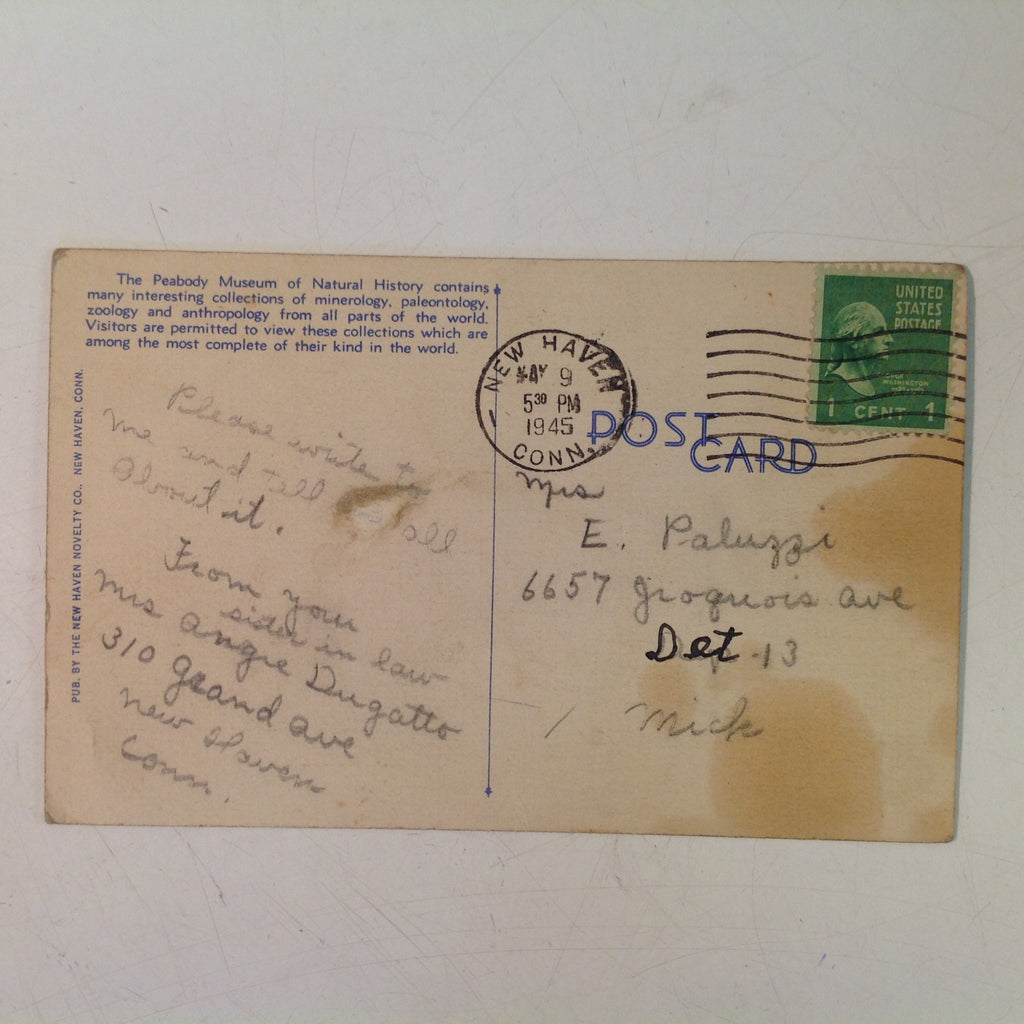 The Peabody Museum of Natural History contains
many interesting collections of minerology, paleontology,
zoology and anthropology from all parts of the world.
Visitors are permitted to view these collections which are
among the most complete of their kind in the world.
PUB. BY THE NEW HAVEN NOVELTY CO., NEW HAVEN, CONN.
Please write to
me and tell all
About it.
From your
sister in law
Mrs Angie Dugatto
310 Grand Ave
New Haven
Conn.
NEW HAVEN
MAY 9
5 30 PM
1945
CONN.
POST
CARD
UNITED
STATES
POSTAGE
WASHINGTON
1 CENT 1
Mrs
E. Paluzzi
6657 Iroquois ave
Det 13
Mich